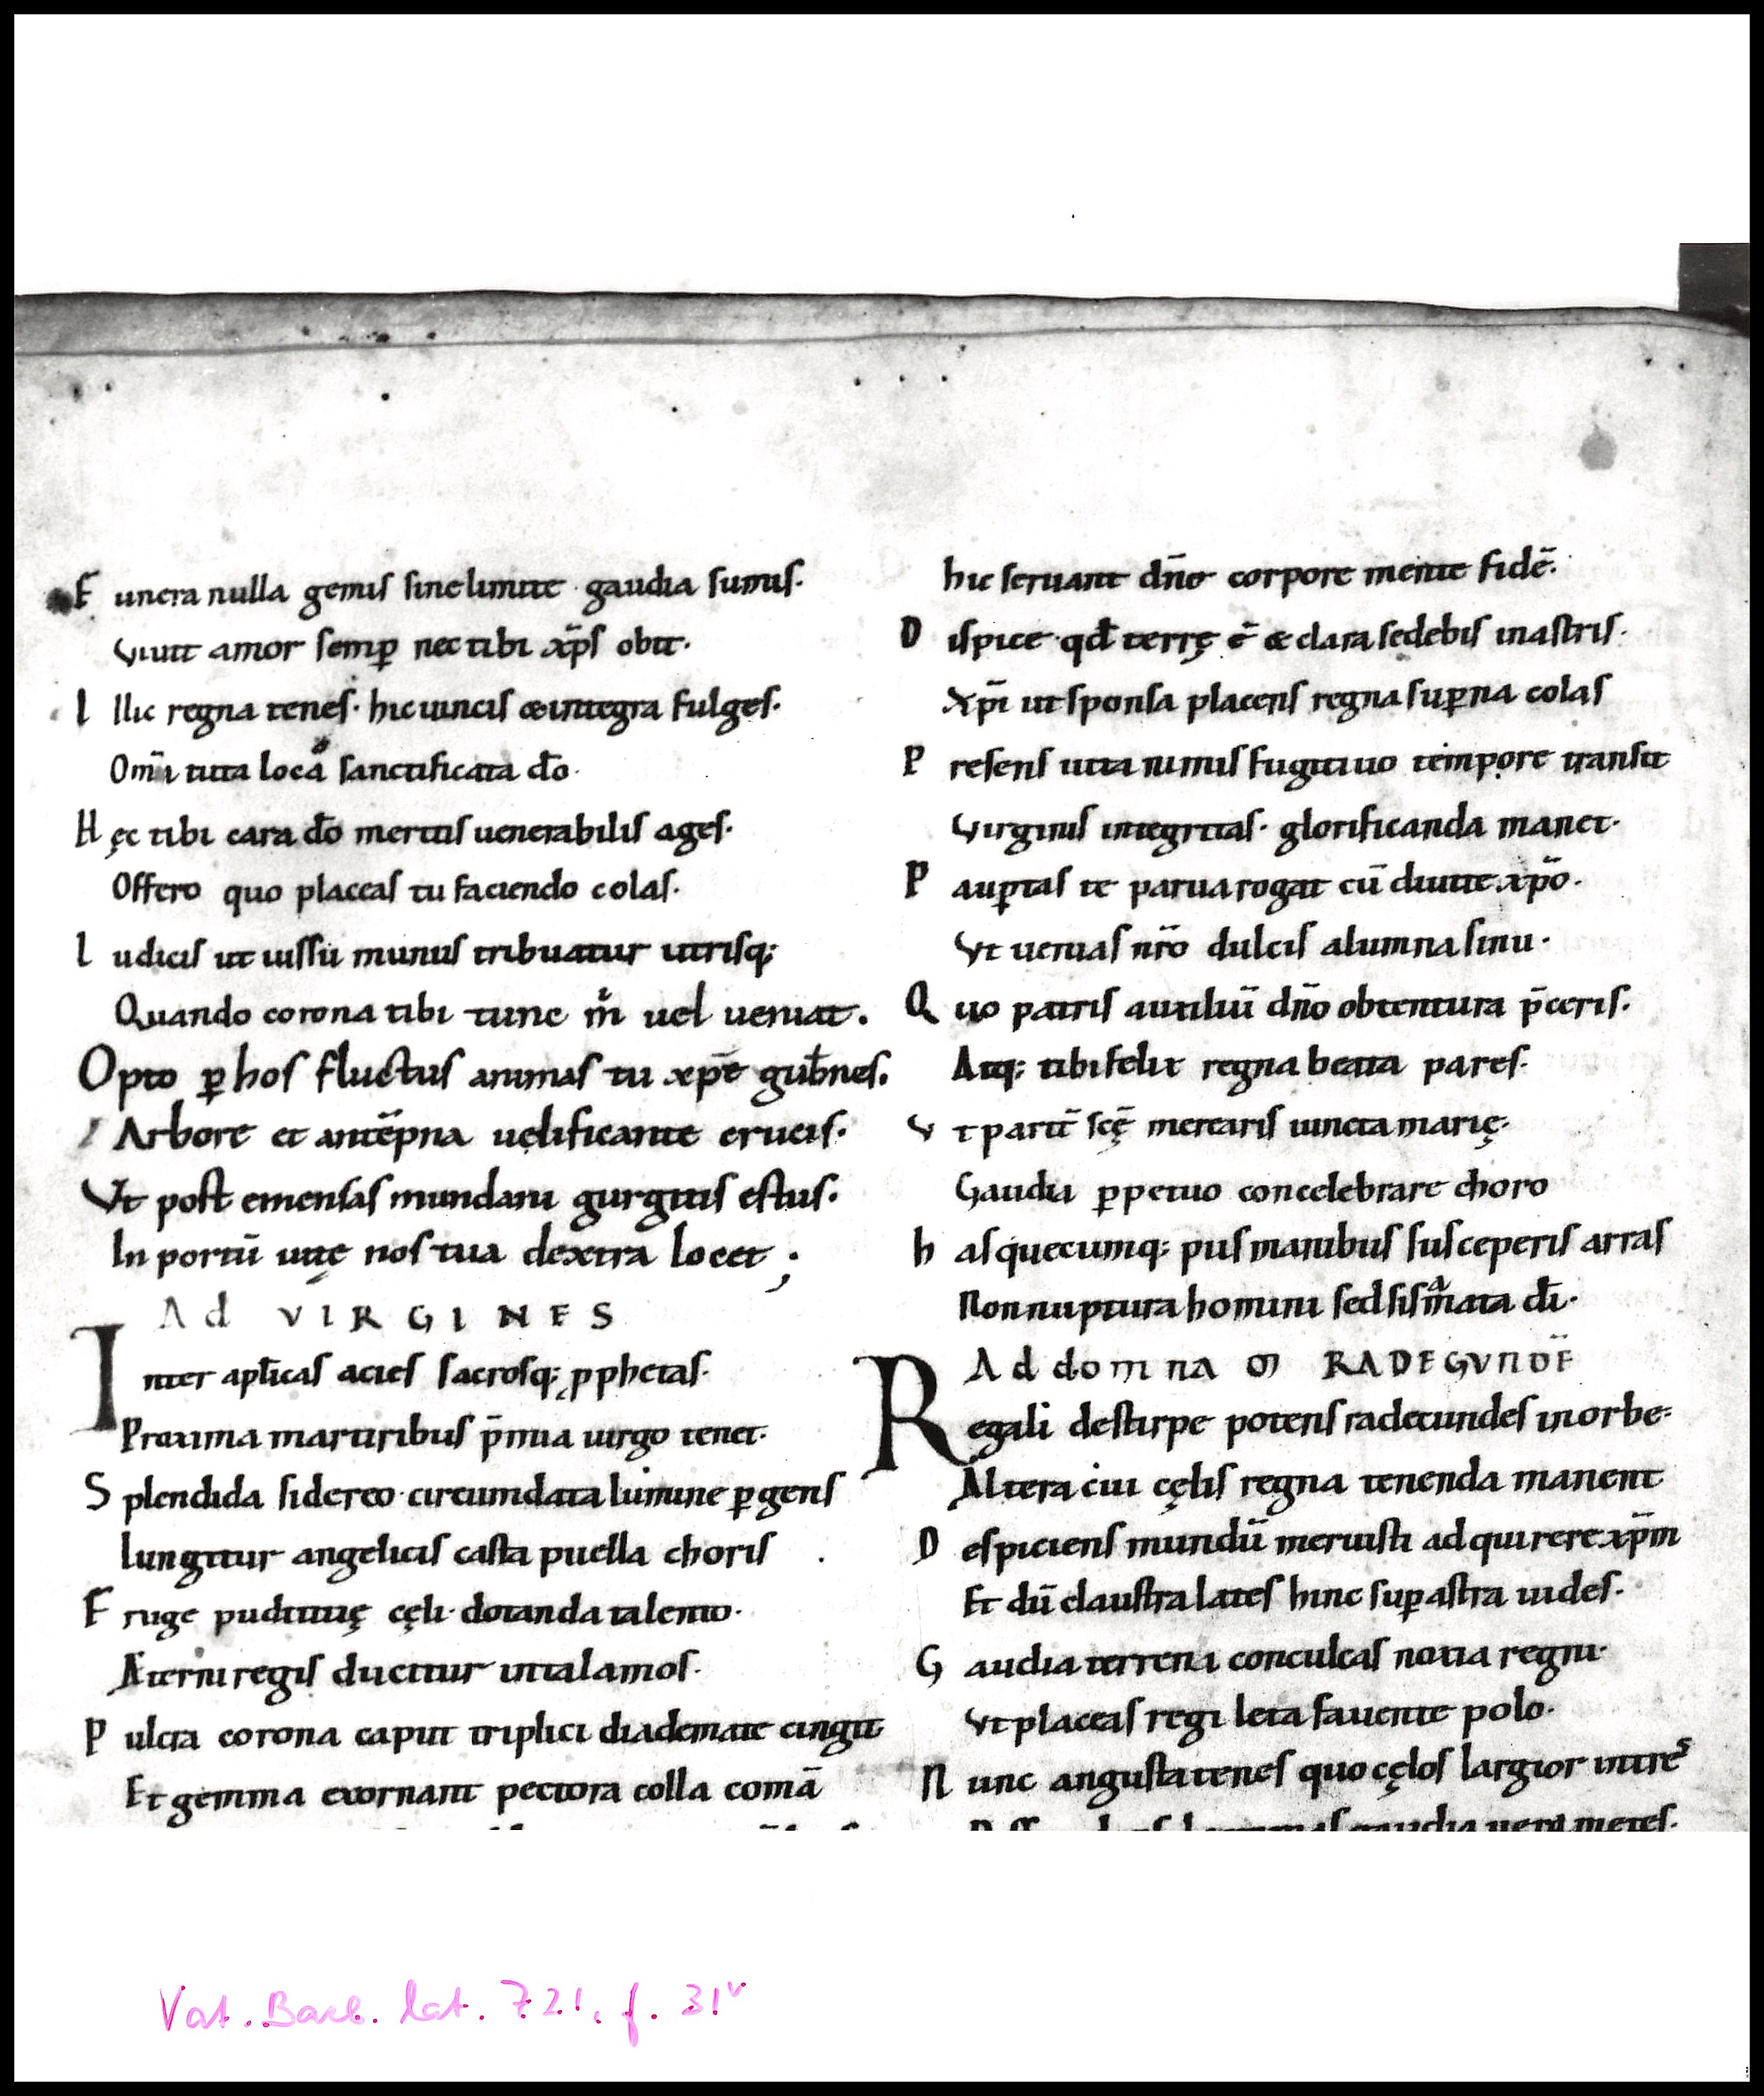 Funera nulla gemis sine limite gaudia sumis·
Viuit amor semꝑ nec tibi xp̄s obit·
Illic regna tenes· hic uincis & integra fulges·
Om̄ia tuta loca sanctificata do̅·
Hęc tibi cara do̅ meritis uenerabilis ages·
Offero quo placeas tu faciendo colas·
Iudicis ut iussu munus tribuatur utrisq;
Quando corona tibi tunc m̊ uel ueniat·
Opto ꝑ hos fluctus animas tu xp̄e gub̄nes·
Arbore et antēpna uelificante crucis·
Vt post emensas mundani gurgitis estus·
In portū uitę nos tua dextra locet ;
Ad VIRGINES
Inter apl̄icas acies sacrosq; ꝓphetas·
Proxima martiribus p̄mia uirgo tenet·
Splendida sidereo circumdata lumine ꝑgens
Iungitur angelicis casta puella choris
Fruge pudicitię cęli· dotanda talento·
Aeterni regis ducitur in talamos·
Pulcra corona caput triplici diademate cingit
Et gemma exornant pectora colla comā
hic seruant dn̄o corpore mente fidē·
Dispice qd̄ terrę ē & clara sedebis in astris·
Xp̄i ut sponsa placens regna suꝑna colas
Presens uita nimis fugitiuo tempore transit
Virginis integritas· glorificanda manet·
Pauꝑtas te parua rogat cū diuite xp̄o·
Vt uenias nr̄o dulcis alumna sinu·
Quo patris auxiliū dn̄o obtentura p̄ceris·
Atq; tibi felix regna beata pares·
Vt partū scę̄ mercaris iuncta marię·
Gaudia ꝑpetuo concelebrare choro
has quecumq; pus manibus susceperis arras
Non nuptura homini sed sis m̊ata di̅·
Ad domna m RADEGVNDĒ
Regali de stirpe potens radecundes in orbe·
Altera cui cęlis regna tenenda manent
Despiciens mundū meruisti adquirere xp̄m
Et dū claustra lates hinc suꝑ astra uides·
Gaudia terrena conculcas noxia regni·
Vt placeas regi leta fauente polo·
Nunc angusta tenes quo cęlos largior intres
gaudia uera metes·
Vat. Barb. lat. 721, f. 31v